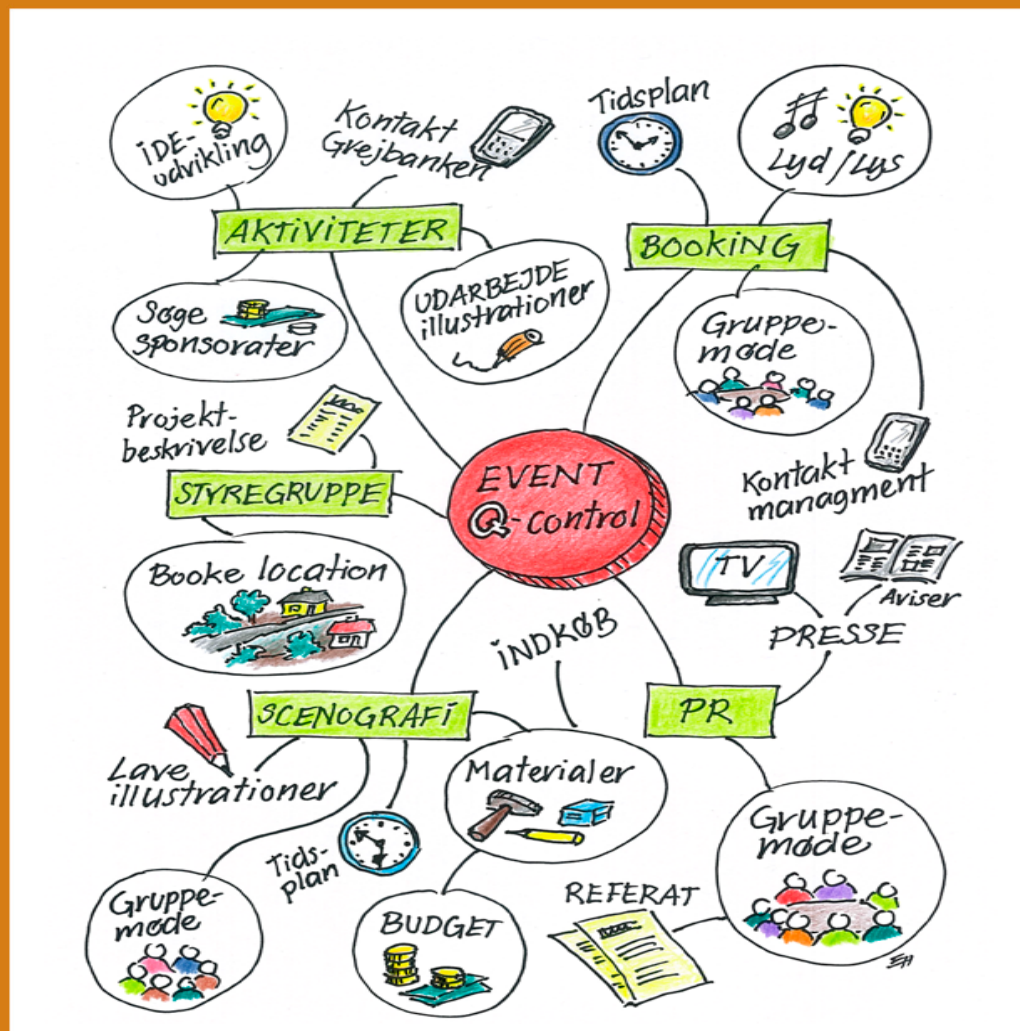 iDE-
udvikling
Kontakt
Grejbanken
Tidsplan
Lyd/Lys
AKTiViTETER
BOOKiNG
UDARBEJDE
illustrationer
Søge
sponsorater
Gruppe-
møde
Projekt-
beskrivelse
STYREGRUPPE
EVENT
Q-control
Kontakt
managment
Booke location
TV
Aviser
PRESSE
iNDKØB
SCENOGRAFi
PR
Lave
illustrationer
Materialer
Tids-
plan
Gruppe-
møde
Gruppe-
møde
BUDGET
REFERAT
EH